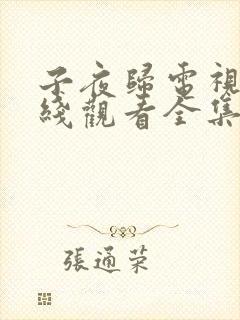 子夜歸電視
綫觀看全集
張通荣